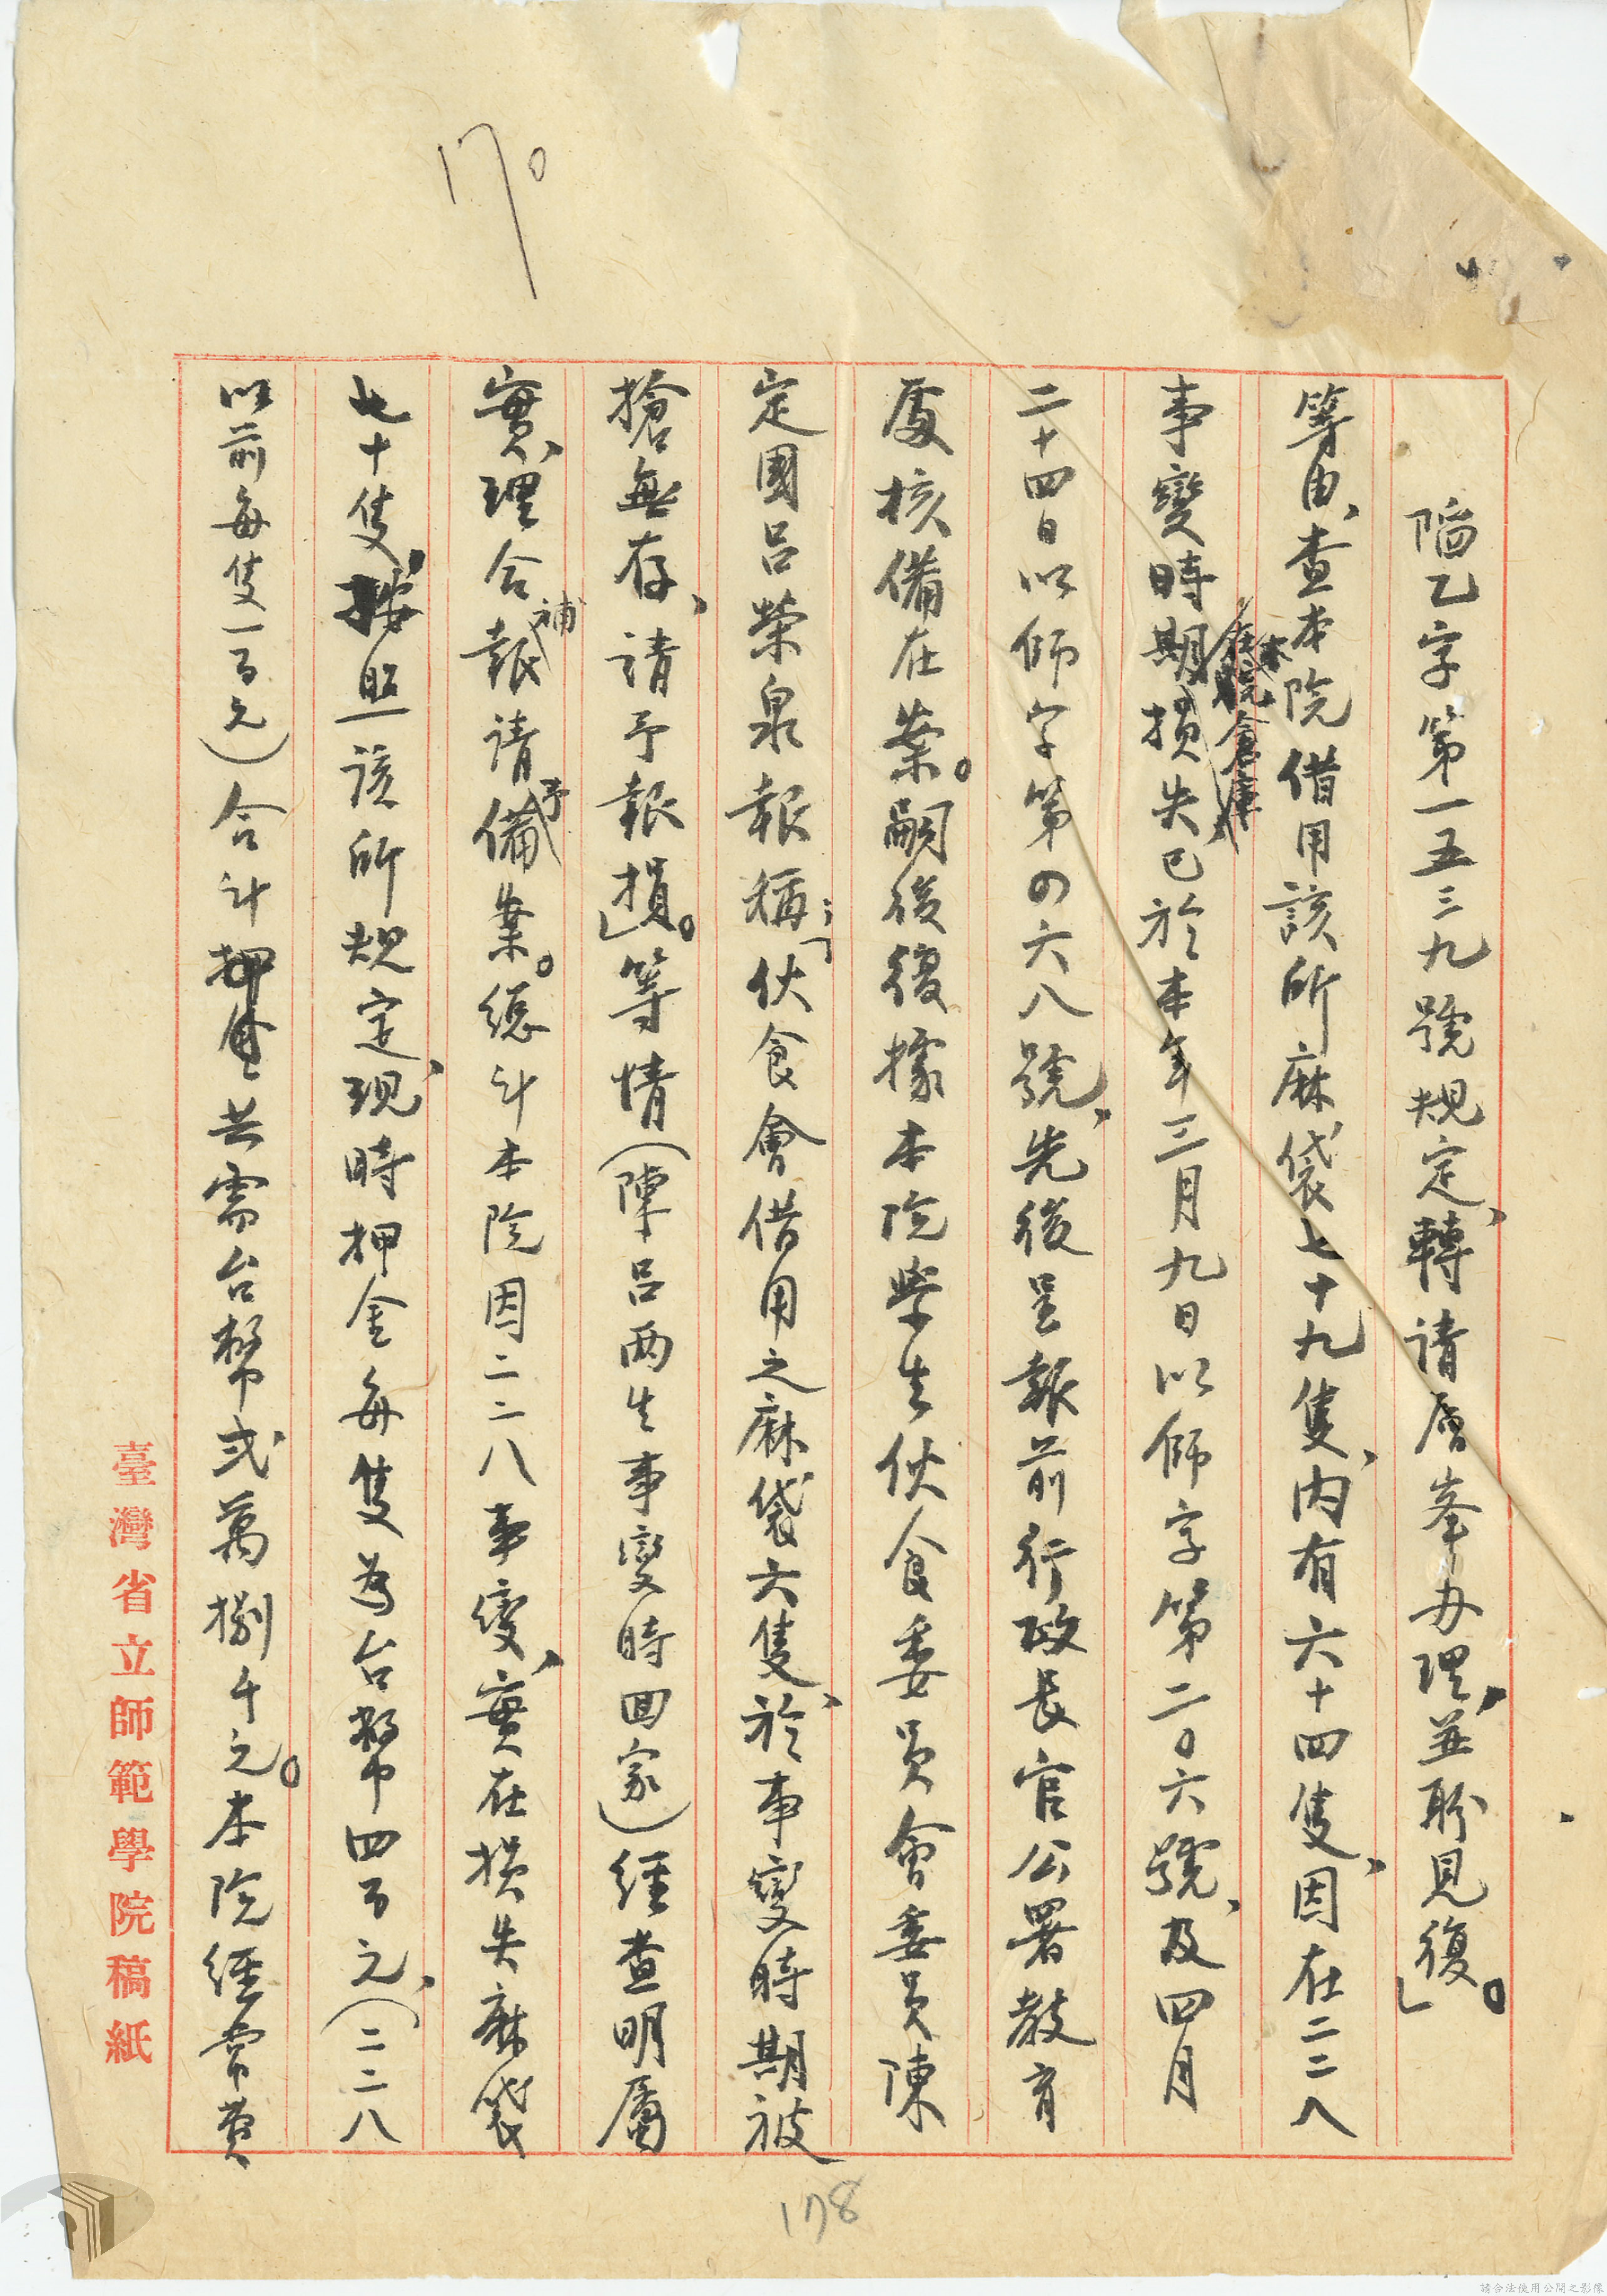 170
陷乙字第一五三九號規定、轉請層峯办理、並盼見復」。
等由、查本院借用該所麻袋七十九隻、內有六十四隻、因在二二八
在本院倉庫
事變時期損失已於本年三月九日以師字第二〇六號、及四月
二十四日以師字第四六八號、先後呈報前行政長官公署教育
處核備在案。嗣後復據本院學生伙食委員會委員陳
定國呂榮泉報稱：「伙食會借用之麻袋六隻、於事變時期被
搶無存、請予報損」。等情（陳呂两生事變時回家）經查明屬
實、理合補報請予備案。總计本院因二二八事變、實在損失麻袋
七十隻、按照該所規定、現時押金每隻為台幣四百元、（二二八
以前每隻一百元）合计押金共需台幣弍萬捌千元。本院經常費
臺灣省立師範學院稿紙
178
請合法使用公開之影像